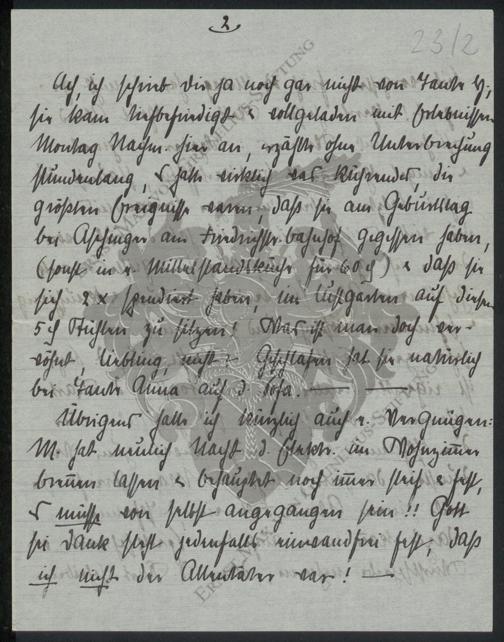 2
23/2
Ach, ich schrieb Dir ja noch gar nicht von Tante V;
sie kam tiefbefriedigt & vollgeladen mit Erlebnissen
Montag Nachm. hier an, erzählte ohne Unterbrechung
stundenlang, & hatte wirklich was Rührendes, die
größten Ereignisse waren, daß sie am Geburtstag
bei Aschinger am Friedrichstr.bahnhof gegessen haben,
(sonst in e. Mittelstandsküche für 60 ₰) & daß sie
sich 2 x spendiert haben, im Lustgarten auf diesen
5 ₰ Stühlen zu sitzen! Was ist man doch ver-
wöhnt, Liebling, nicht – Geschlafen hat sie natürlich
bei Tante Anna auf d. Sofa. — —
Übrigens hatte ich kürzlich auch e. Vergnügen:
M. hat neulich Nacht d. elektr. im Wohnzimmer
brennen lassen & behauptet noch immer steif & fest,
es müsse von selbst angegangen sein!! Gott
sei Dank steht jedenfalls einwandfrei fest, daß
ich nicht der Attentäter war! —